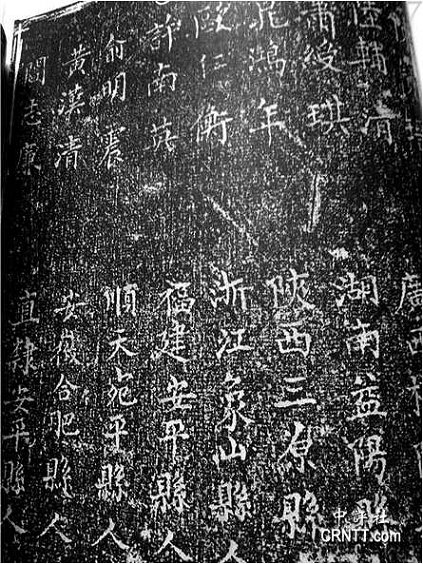 廣西
輔清 湖南益陽縣
蕭綬琪 陝西三原縣
鴻年 浙江象山縣人
歐仁衡 福建安平縣人
許南英 順天宛平縣人
俞明震 安徽合肥縣人
黃漢清 直隸安平縣人
閻志廉
中评社
CRNTT.com